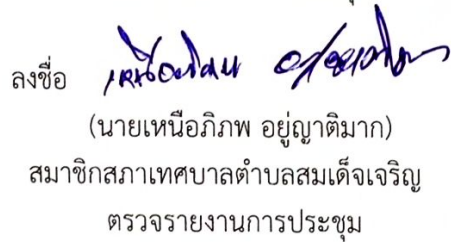 ลงชื่อ
(นายเหนือภิภพ อยู่ญาติมาก)
สมาชิกสภาเทศบาลตำบลสมเด็จเจริญ
ตรวจรายงานการประชุม